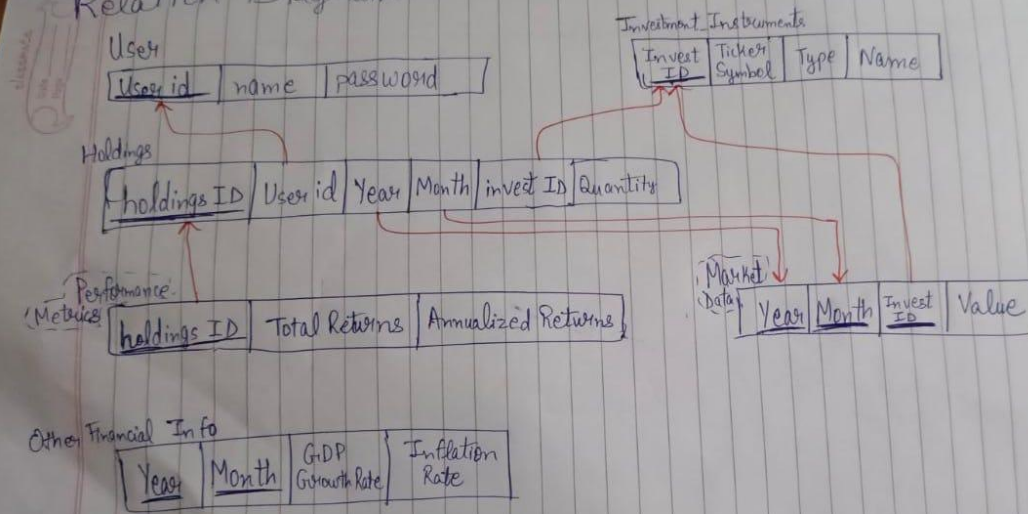 User
User id name password
Investment Instruments
Invest ID Ticker Symbol Type Name
Holdings
holdings ID User id Year Month invest ID Quantity
Performance
Metrics
holdings ID Total Returns Annualized Returns
Market
Data
Year Month Invest ID Value
Other Financial Info
Year Month GDP Growth Rate Inflation Rate